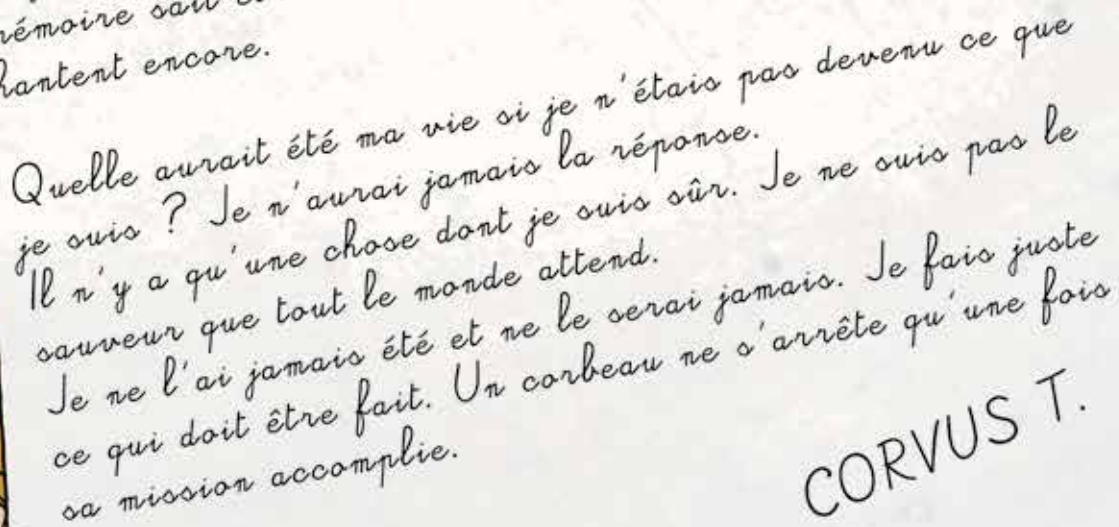 hantent encore.
Quelle aurait été ma vie si je n'étais pas devenu ce que
je suis ? Je n'aurai jamais la réponse.
Il n'y a qu'une chose dont je suis sûr. Je ne suis pas le
sauveur que tout le monde attend.
Je ne l'ai jamais été et ne le serai jamais. Je fais juste
ce qui doit être fait. Un corbeau ne s'arrête qu'une fois
sa mission accomplie.
CORVUS T.